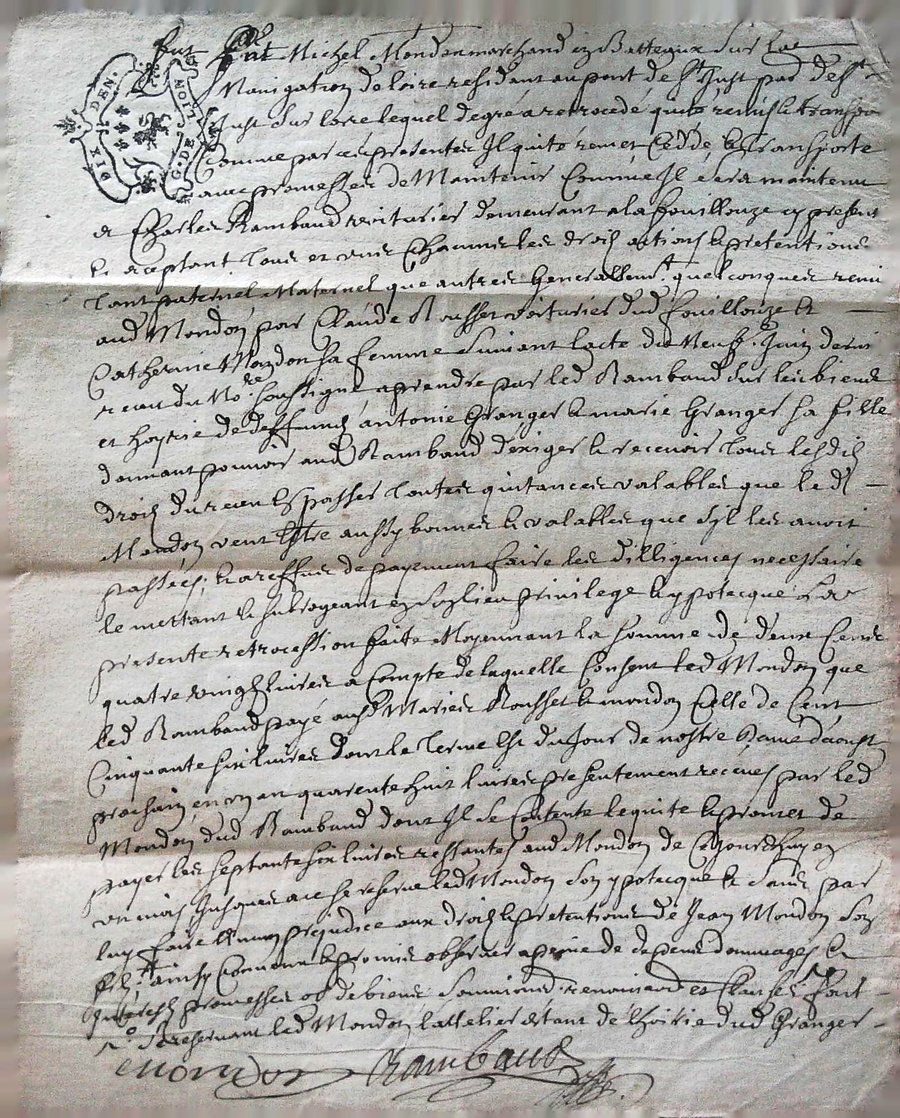 DIX DEN. G. DE LION
fut Michel Mondon marchand en Batteaux sur la
Navigation de loire residant au pont de St Just par de St
Just sur loire lequel degré a retrocedé quité remis &
Comme par ces presentes Il quité remet Cedde & transporte
avec promesses de Maintenir Comme Il sera maintenu
a Charles Rambaud voiturier demeurant a la fouillouze cy present
& aceptant tous et uns Chacuns les droits actions & pretentions
tant paternel Maternel que autres Generallemt quelconques remis
aud Mondon par Claude Rousset voiturier dud fouillouze &
Catherine Mondon sa femme suivant lacte du Neuf Juin dernier
receu du No.re soussigné a prendre par led Rambaud sur les biens
et hoyrie de deffunct antoine Granger & marie Granger sa fille
donnant pouvoir aud Rambaud dexiger & recevoir tous lesdits
droits du receu & passer toutes quitances valables que led
Mondon veut Estre aussy bonnes & valables que syl les avoit
passées; & a reffus de payement faire les dilligences necessaire
le mettant & subrogeant en son lieu privilege & ypotecque La
presente retrocession faite Moyennant la somme de deux Cents
quatre vingts livres a Compte de laquelle Consent led Mondon que
led Rambaud paye ausd Mariés Rousset & mondon Celle de Cent
Cinquante six livres dont le terme est du Jour de nostre Dame daoust
prochain en un an quarente huit livres presentement receues par led
Mondon dud Rambaud dont Il se Contente lequite & promet de
payer les septante six livres restantes aud Mondon de Cejourdhuy en
un mois Jusques a ce se reserve led Mondon son ypotecque & sans par
luy faire aucun prejudice aux droits & pretentions de Jean Mondon son
fils; ainsy Convenu & promis observer a peine de depens dommages &
interests promesses ob de biens soumions renonciaons et Clauses fait
se reservant led Mondon lattelier estant de lhoirie dud Granger
mondon Rambaud